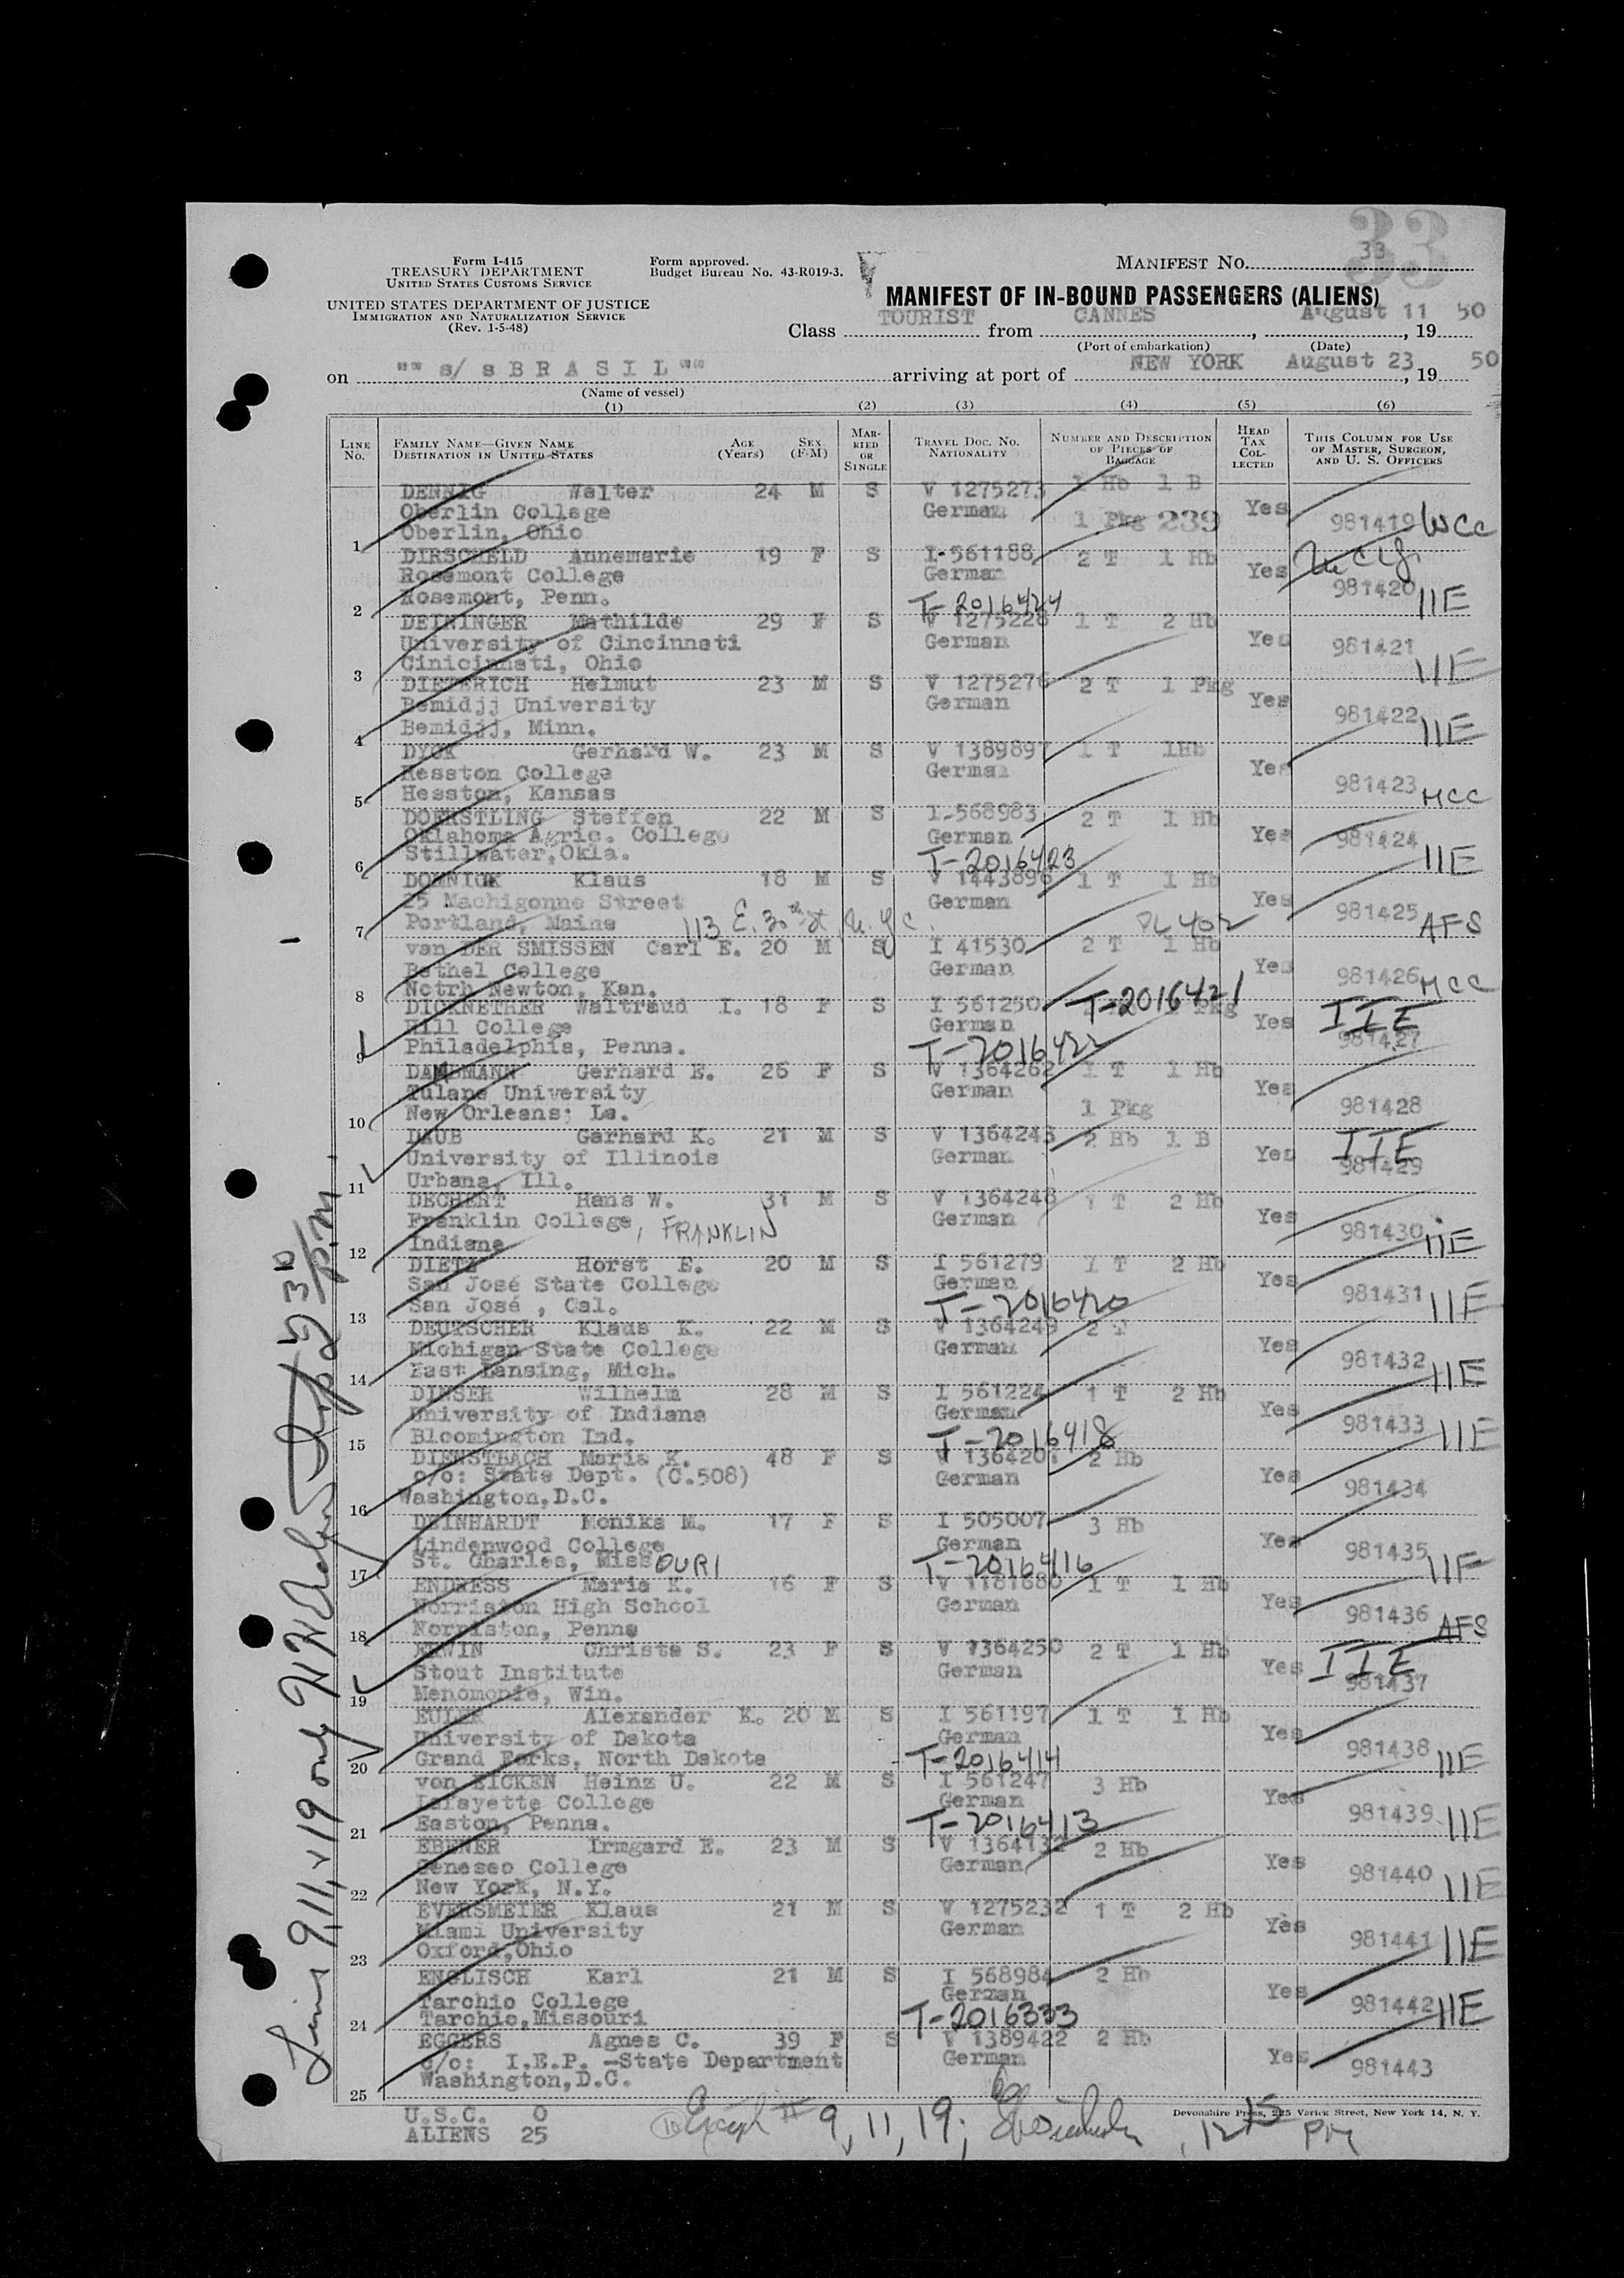 33
Form I-415
TREASURY DEPARTMENT
UNITED STATES CUSTOMS SERVICE
UNITED STATES DEPARTMENT OF JUSTICE
IMMIGRATION AND NATURALIZATION SERVICE
(Rev. 1-5-48)
Form approved.
Budget Bureau No. 43-R019-3.
MANIFEST No. 33
MANIFEST OF IN-BOUND PASSENGERS (ALIENS)
Class TOURIST from CANNES, August 11, 19 50
(Port of embarkation) (Date)
on "" s/ s B R A S I L "" arriving at port of NEW YORK August 23, 19 50
(Name of vessel)
(1) (2) (3) (4) (5) (6)
LINE No. FAMILY NAME—GIVEN NAME DESTINATION IN UNITED STATES AGE (Years) SEX (F-M) MARRIED OR SINGLE TRAVEL DOC. NO. NATIONALITY NUMBER AND DESCRIPTION OF PIECES OF BAGGAGE HEAD TAX COLLECTED THIS COLUMN FOR USE OF MASTER, SURGEON, AND U. S. OFFICERS
DENNIG Walter 24 M S V 1275273 1 Hb 1 B
Oberlin College German 1 Pkg 239 Yes 981419 WCC
1 Oberlin, Ohio
DIRSCHELD Annemarie 19 F S I-561188 2 T 1 Hb
Rosemont College German Yes 981420 IIE
2 Rosemont, Penn. T-2016424
DEININGER Mathilde 29 F S V 1275228 1 T 2 Hb
University of Cincinnati German Yes 981421 IIE
3 Cinicinnati, Ohio
DIETERICH Helmut 23 M S V 1275276 2 T 1 Pkg
Bemidjj University German Yes 981422 IIE
4 Bemidjj, Minn.
DYCK Gerhard W. 23 M S V 1389897 1 T 1Hb
Hesston College German Yes 981423 MCC
5 Hesston, Kansas
DOERSTLING Steffen 22 M S I-568983 2 T 1 Hb
Oklahoma Agric. College German Yes 981424 IIE
6 Stillwater,Okla. T-2016423
DOMNICK Klaus 18 M S V 1443896 1 T 1 Hb
25 Machigonne Street German Yes 981425 AFS
7 Portland, Maine 113 E. 30th St. N.Y.C.
van DER SMISSEN Carl E. 20 M S I 41530 2 T 1 Hb
Bethel College German Yes 981426 MCC
8 Notrh Newton, Kan.
DICKNETHER Waltraud I. 18 F S I 561250 T-2016421 Pkg
Hill College German Yes IIE 981427
9 Philadelphia, Penna. T-2016422
DAMBMANN Gerhard E. 26 F S V 1364262 1 T 1 Hb
Tulane University German 1 Pkg Yes 981428
10 New Orleans; La.
DAUB Gerhard K. 21 M S V 1364243 2 Hb 1 B
University of Illinois German Yes IIE 981429
11 Urbana, Ill.
DECHERT Hans W. 31 M S V 1364248 1 T 2 Hb
Franklin College, FRANKLIN German Yes 981430 IIE
12 Indiana
DIETZ Horst E. 20 M S I 561279 1 T 2 Hb
San José State College German Yes 981431 IIE
13 San José , Cal. T-2016420
DEUTSCHER Klaus K. 22 M S V 1364249 2 T
Michigan State College German Yes 981432 IIE
14 East Lansing, Mich.
DINSER Wilhelm 28 M S I 561224 1 T 2 Hb
University of Indiana German Yes 981433 IIE
15 Bloomington Ind. T-2016418
DIENSTBACH Maria K. 48 F S V 1364201 2 Hb
c/o: State Dept. (C.508) German Yes 981434
16 Washington,D.C.
DEINHARDT Monika M. 17 F S I 505007 3 Hb
Lindenwood College German Yes 981435 IIE
17 St. Charles, MissOURI T-2016416
ENDRESS Maria K. 16 F S V 1181680 1 T 1 Hb
Norriston High School German Yes 981436 AFS
18 Norriston, Penna
ERWIN Christa S. 23 F S V 1364250 2 T 1 Hb
Stout Institute German Yes IIE 981437
19 Menomonie, Win.
EULER Alexander K. 20 M S I 561197 1 T 1 Hb
University of Dakota German Yes 981438 IIE
20 Grand Forks, North Dakota T-2016414
von EICKEN Heinz U. 22 M S I 561247 3 Hb
Lafayette College German Yes 981439 IIE
21 Easton, Penna. T-2016413
EBENER Irmgard E. 23 M S V 1364132 2 Hb
Geneseo College German Yes 981440 IIE
22 New York, N.Y.
EVERSMEIER Klaus 21 M S V 1275232 1 T 2 Hb
Miami University German Yes 981441 IIE
23 Oxford,Ohio
ENGLISCH Karl 21 M S I 568984 2 Hb
Tarchio College German Yes 981442 IIE
24 Tarchio,Missouri T-2016333
EGGERS Agnes C. 39 F S V 1389422 2 Hb
c/o: I.E.P. -State Department German Yes 981443
25 Washington,D.C.
U.S.C. 0
ALIENS 25
Except # 9, 11, 19; 12 15 PM
Devonshire Press, 225 Varick Street, New York 14, N. Y.
Lines 9, 11, + 19 only